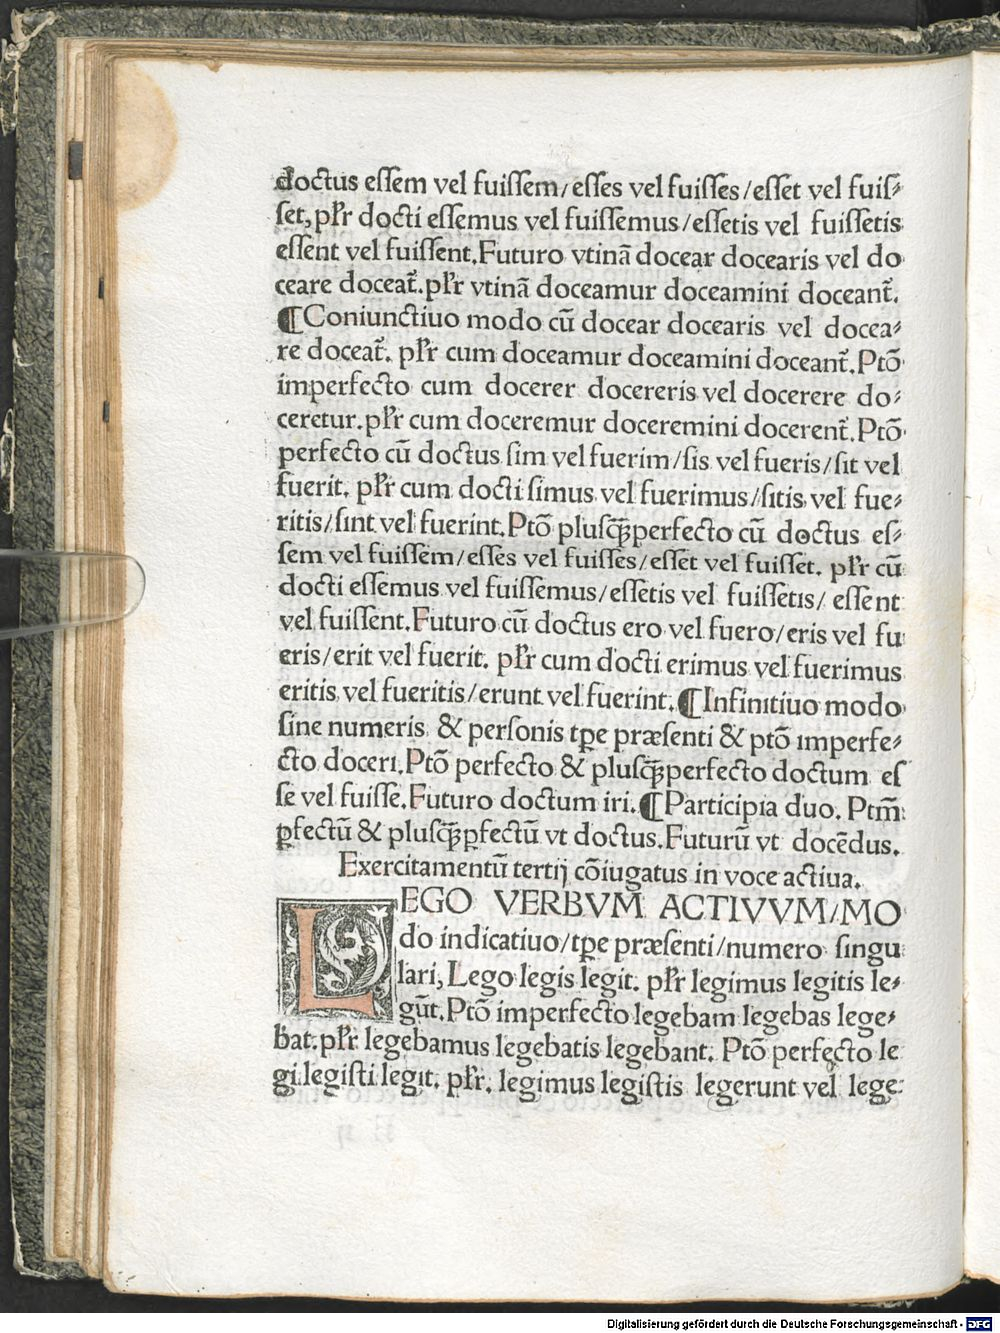 doctus eſſem vel fuiſſem/eſſes vel fuiſſes/eſſet vel fuiſ⸗
ſet, pl̃r docti eſſemus vel fuiſſemus/eſſetis vel fuiſſetis
eſſent vel fuiſſent. Futuro vtinã docear docearis vel do
ceare doceat̃. pl̃r vtinã doceamur doceamini doceant̃.
¶Coniunctiuo modo cũ docear docearis vel docea⸗
re doceat̃. pl̃r cum doceamur doceamini doceant̃. Ptõ
imperfecto cum docerer docereris vel docerere do⸗
ceretur. pl̃r cum doceremur doceremini docerent̃. Ptõ
perfecto cũ doctus ſim vel fuerim/ſis vel fueris/ſit vel
fuerit. pl̃r cum docti ſimus vel fuerimus/ſitis vel fue⸗
ritis/ſint vel fuerint. Ptõ pluſꝗ̃perfecto cũ doctus eſ⸗
ſem vel fuiſſem/eſſes vel fuiſſes/eſſet vel fuiſſet. pl̃r cũ
docti eſſemus vel fuiſſemus/eſſetis vel fuiſſetis/ eſſent
vel fuiſſent. Futuro cũ doctus ero vel fuero/eris vel fu
eris/erit vel fuerit. pl̃r cum docti erimus vel fuerimus
eritis vel fueritis/erunt vel fuerint. ¶Infinitiuo modo
ſine numeris & perſonis tꝑe præſenti & ptõ imperfe⸗
cto doceri. Ptõ perfecto & pluſꝗ̃perfecto doctum eſ
ſe vel fuiſſe. Futuro doctum iri. ¶Participia duo. Ptm̃
ꝑfectũ & pluſꝗ̃ꝑfectũ vt doctus. Futurũ vt docẽdus.
Exercitamentũ tertij cõiugatus in voce actiua.
LEGO VERBVM ACTIVVM/MO
do indicatiuo/tꝑe præſenti/numero ſingu
lari, Lego legis legit. pl̃r legimus legitis le⸗
gũt. Ptõ imperfecto legebam legebas lege⸗
bat. pl̃r legebamus legebatis legebant. Ptõ perfecto le
gi legiſti legit. pl̃r. legimus legiſtis legerunt vel lege
Digitalisierung gefördert durch die Deutsche Forschungsgemeinschaft - DFG